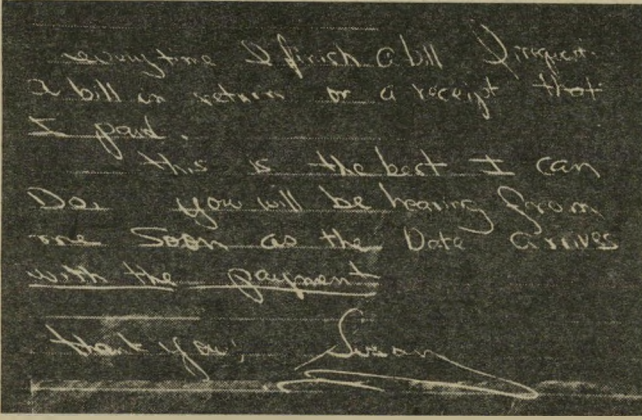 everytime I finish a bill I request
a bill in return or a receipt that
I paid.
this is the best I can
Do. you will be hearing from
me Soon as the Date arrives
with the payment
thank you! Susan